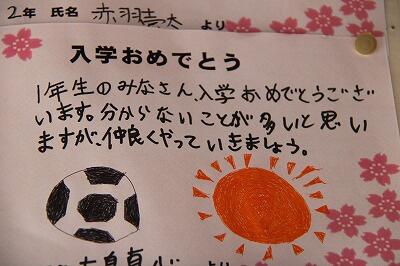 2年 氏名 赤羽 より
入学おめでとう
1年生のみなさん、入学おめでとうござい
います。分からないことが多いと思い
ますが、仲良くやっていきましょう。
より